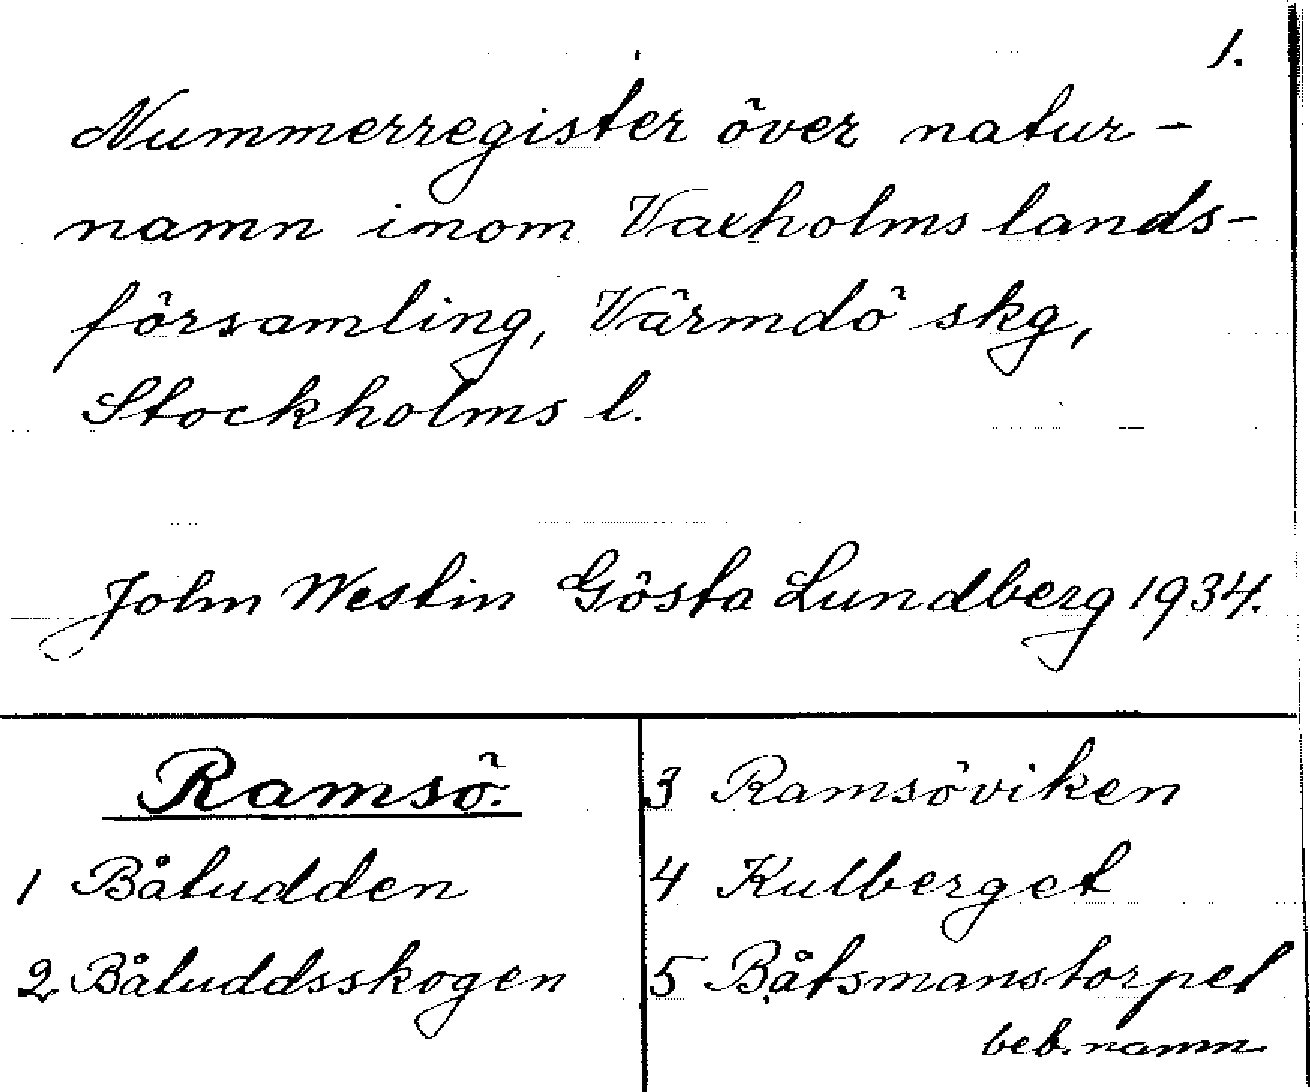 1.
Nummerregister över natur-
namn inom Vaxholms lands-
församling, Värmdö skg,
Stockholms l.
John Westin Gösta Lundberg 1934.
Ramsö.
1 Båtudden
2 Båtuddsskogen
3 Ramsöviken
4 Kulberget
5 Båtsmanstorpet
beb. namn